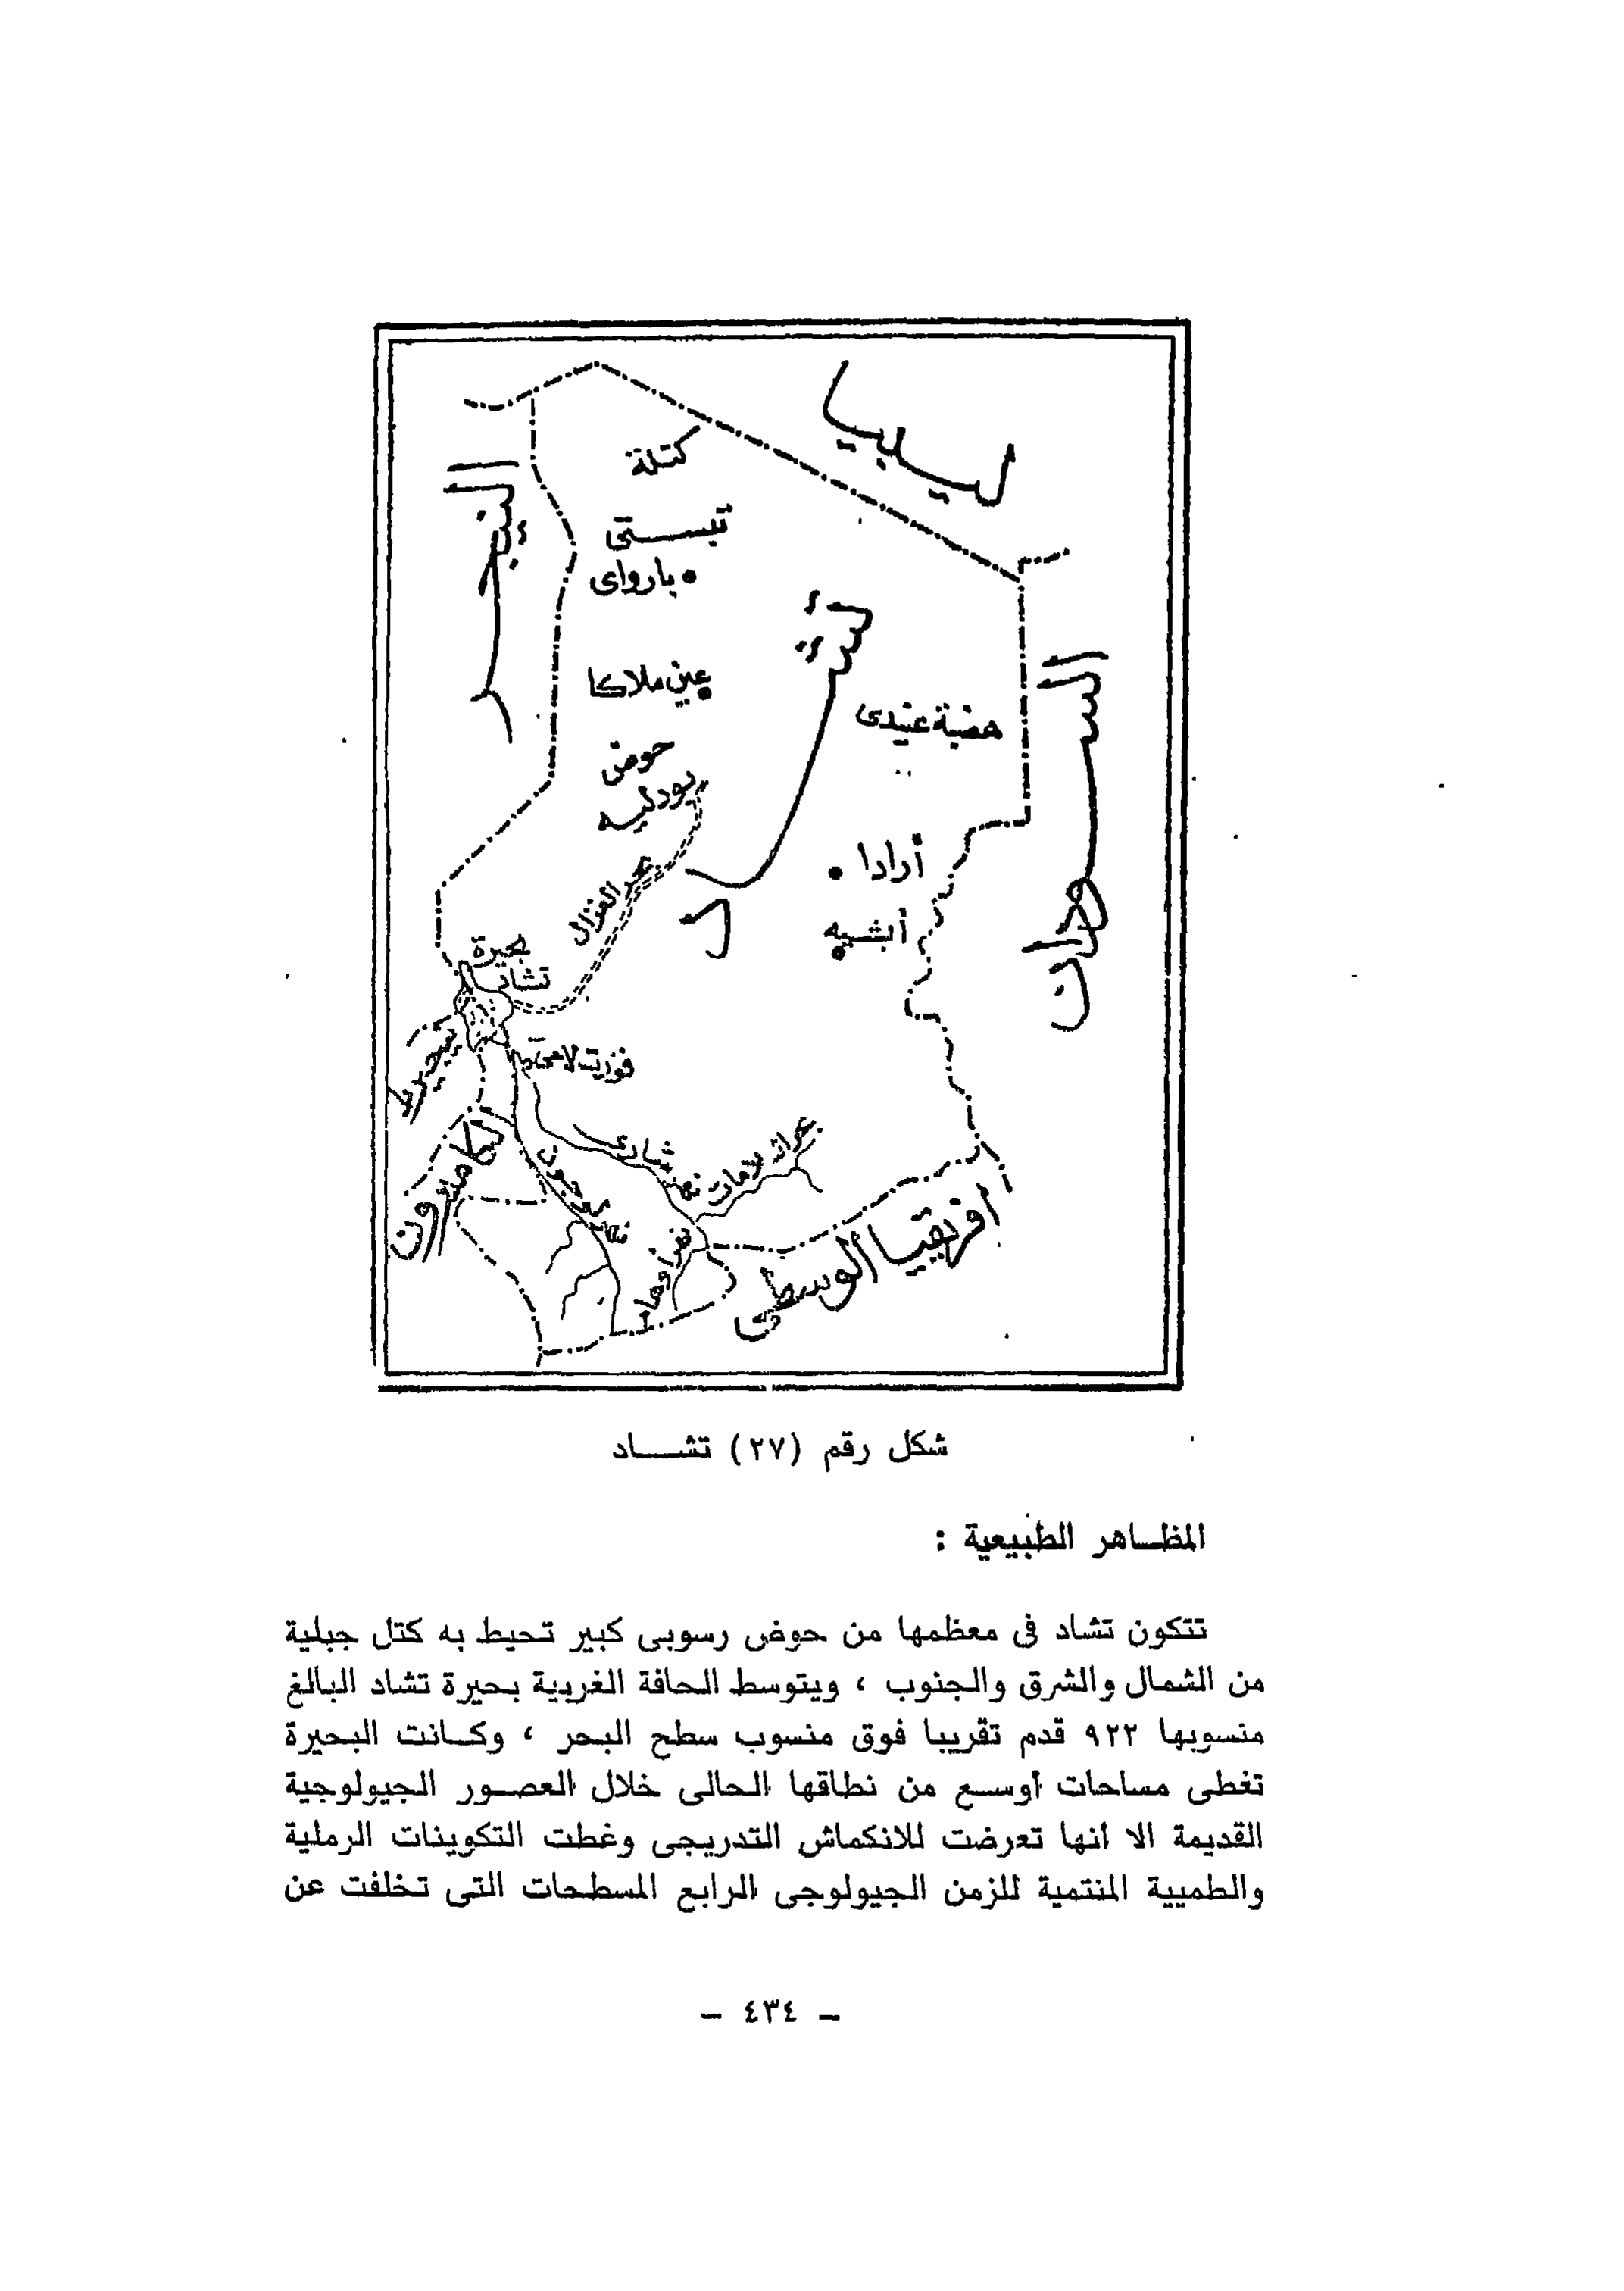 ليبيا
النيجر
كتلة
تبستى
بارواى
تشاد
السودان
عين ملاكا
هضبة عنيدى
حوض
بودليه
أرادا
بحر الغزال
أبشيه
بحيرة
تشاد
نيجيريا
فورت لامى
الكاميرون
نهر شارى
بحر الامات
نهر لوجون
افريقيا الوسطى
شكل رقم (٢٧) تشــاد
المظـاهر الطبيعية :
تتكون تشاد فى معظمها من حوض رسوبى كبير تحيط به كتل جبلية
من الشمال والشرق والجنوب ، ويتوسط الحافة الغربية بحيرة تشاد البالغ
منسوبها ٩٢٢ قدم تقريبا فوق منسوب سطح البحر ، وكـانت البحيرة
تغطى مساحات أوسـع من نطاقها الحالى خلال العصـور الجيولوجية
القديمة الا انها تعرضت للانكماش التدريجى وغطت التكوينات الرملية
والطميية المنتمية للزمن الجيولوجى الرابع المسطحات التى تخلفت عن
– ٤٣٤ –